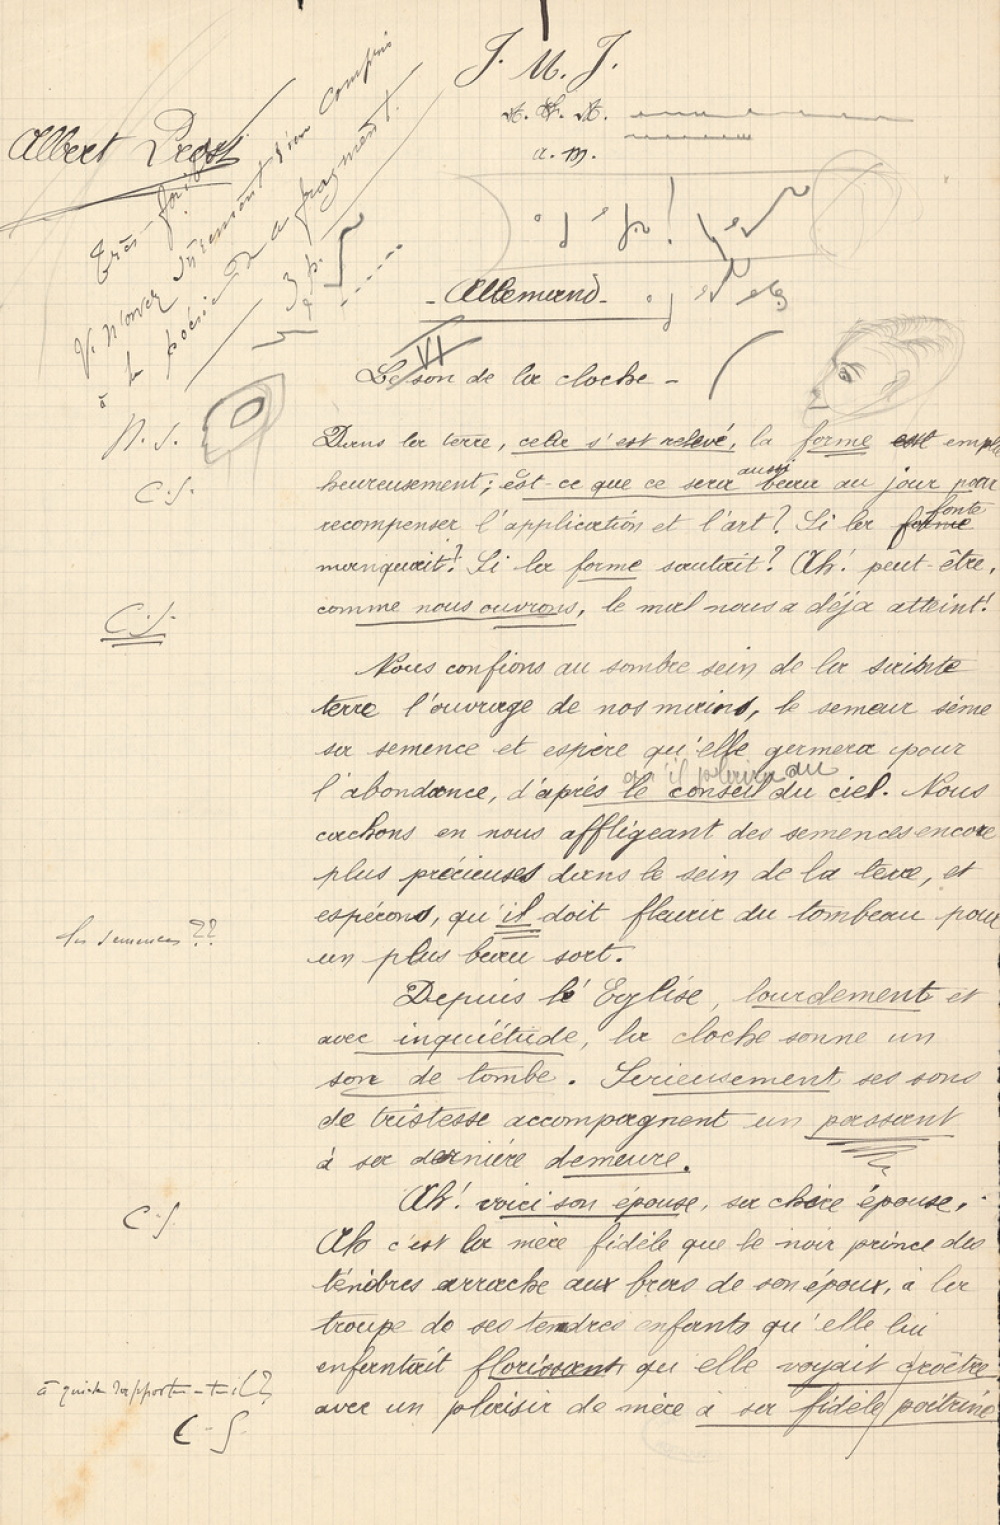 J. M. J.
a. m.
Albert Prost
Très faible
V. n'avez sûrement rien compris
à la poésie de ce fragment.
3 p.
- Allemand -
VI
Le son de la cloche -
N. S.
Dans la terre, cela s'est relevé, la forme est empl
C. S.
heureusement; est-ce que ce sera aussi beau au jour pour
recompenser l'application et l'art? Si la forme fonte
manquait? Si la forme sautait? Ah! peut-être,
C. S.
comme nous ouvrons, le mal nous a déja atteint!
Nous confions au sombre sein de la sainte
terre l'ouvrage de nos mains, le semeur sème
sa semence et espère qu'elle germera pour
qu'il plaira au
l'abondance, d'après le conseil du ciel. Nous
cachons en nous affligeant des semences encore
plus précieuses dans le sein de la terre, et
espérons, qu'il doit fleurir du tombeau pour
les semences ??
un plus beau sort.
Depuis l'Eglise, lourdement et
avec inquiétude, la cloche sonne un
son de tombe. Serieusement ses sons
de tristesse accompagnent un passant
à sa dernière demeure.
Ah! voici son épouse, sa chère épouse,
C. S.
Ah c'est la mère fidèle que le noir prince des
ténèbres arrache aux bras de son époux, à la
troupe de ses tendres enfants qu'elle lui
enfantait florissant, qu'elle voyait croître
à qui se rapporte-t-il ?
avec un plaisir de mère à sa fidèle poitrine
C. S.